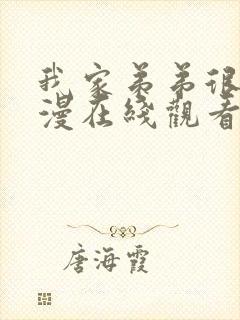 我家弟弟很
漫在綫觀看
唐海霞